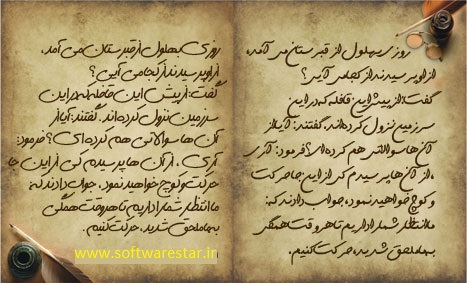 روزی بهلول از قبرستان می آمد،
از او پرسیدند از کجا می آیی؟
گفت: از پیش این قافله که در این
سرزمین نزول کرده اند، گفتند: آیا از
آن ها سوالاتی هم کرده ای؟ فرمود: آری
، از آن ها پرسیدم کی از این جا حرکت
و کوچ خواهید نمود، جواب دادند که:
ما انتظار شما را داریم تا هر وقت همگی
به ما ملحق شدید، حرکت کنیم.
روزی بهلول از قبرستان می آمد،
از او پرسیدند از کجا می آیی؟
گفت: از پیش این قافله که در این
سرزمین نزول کرده اند، گفتند: آیا از
آن ها سوالاتی هم کرده ای؟ فرمود:
آری، از آن ها پرسیدم کی از این جا
حرکت و کوچ خواهید نمود، جواب دادند که:
ما انتظار شما را داریم تا هر وقت همگی
به ما ملحق شدید، حرکت کنیم.
www.softwarestar.ir